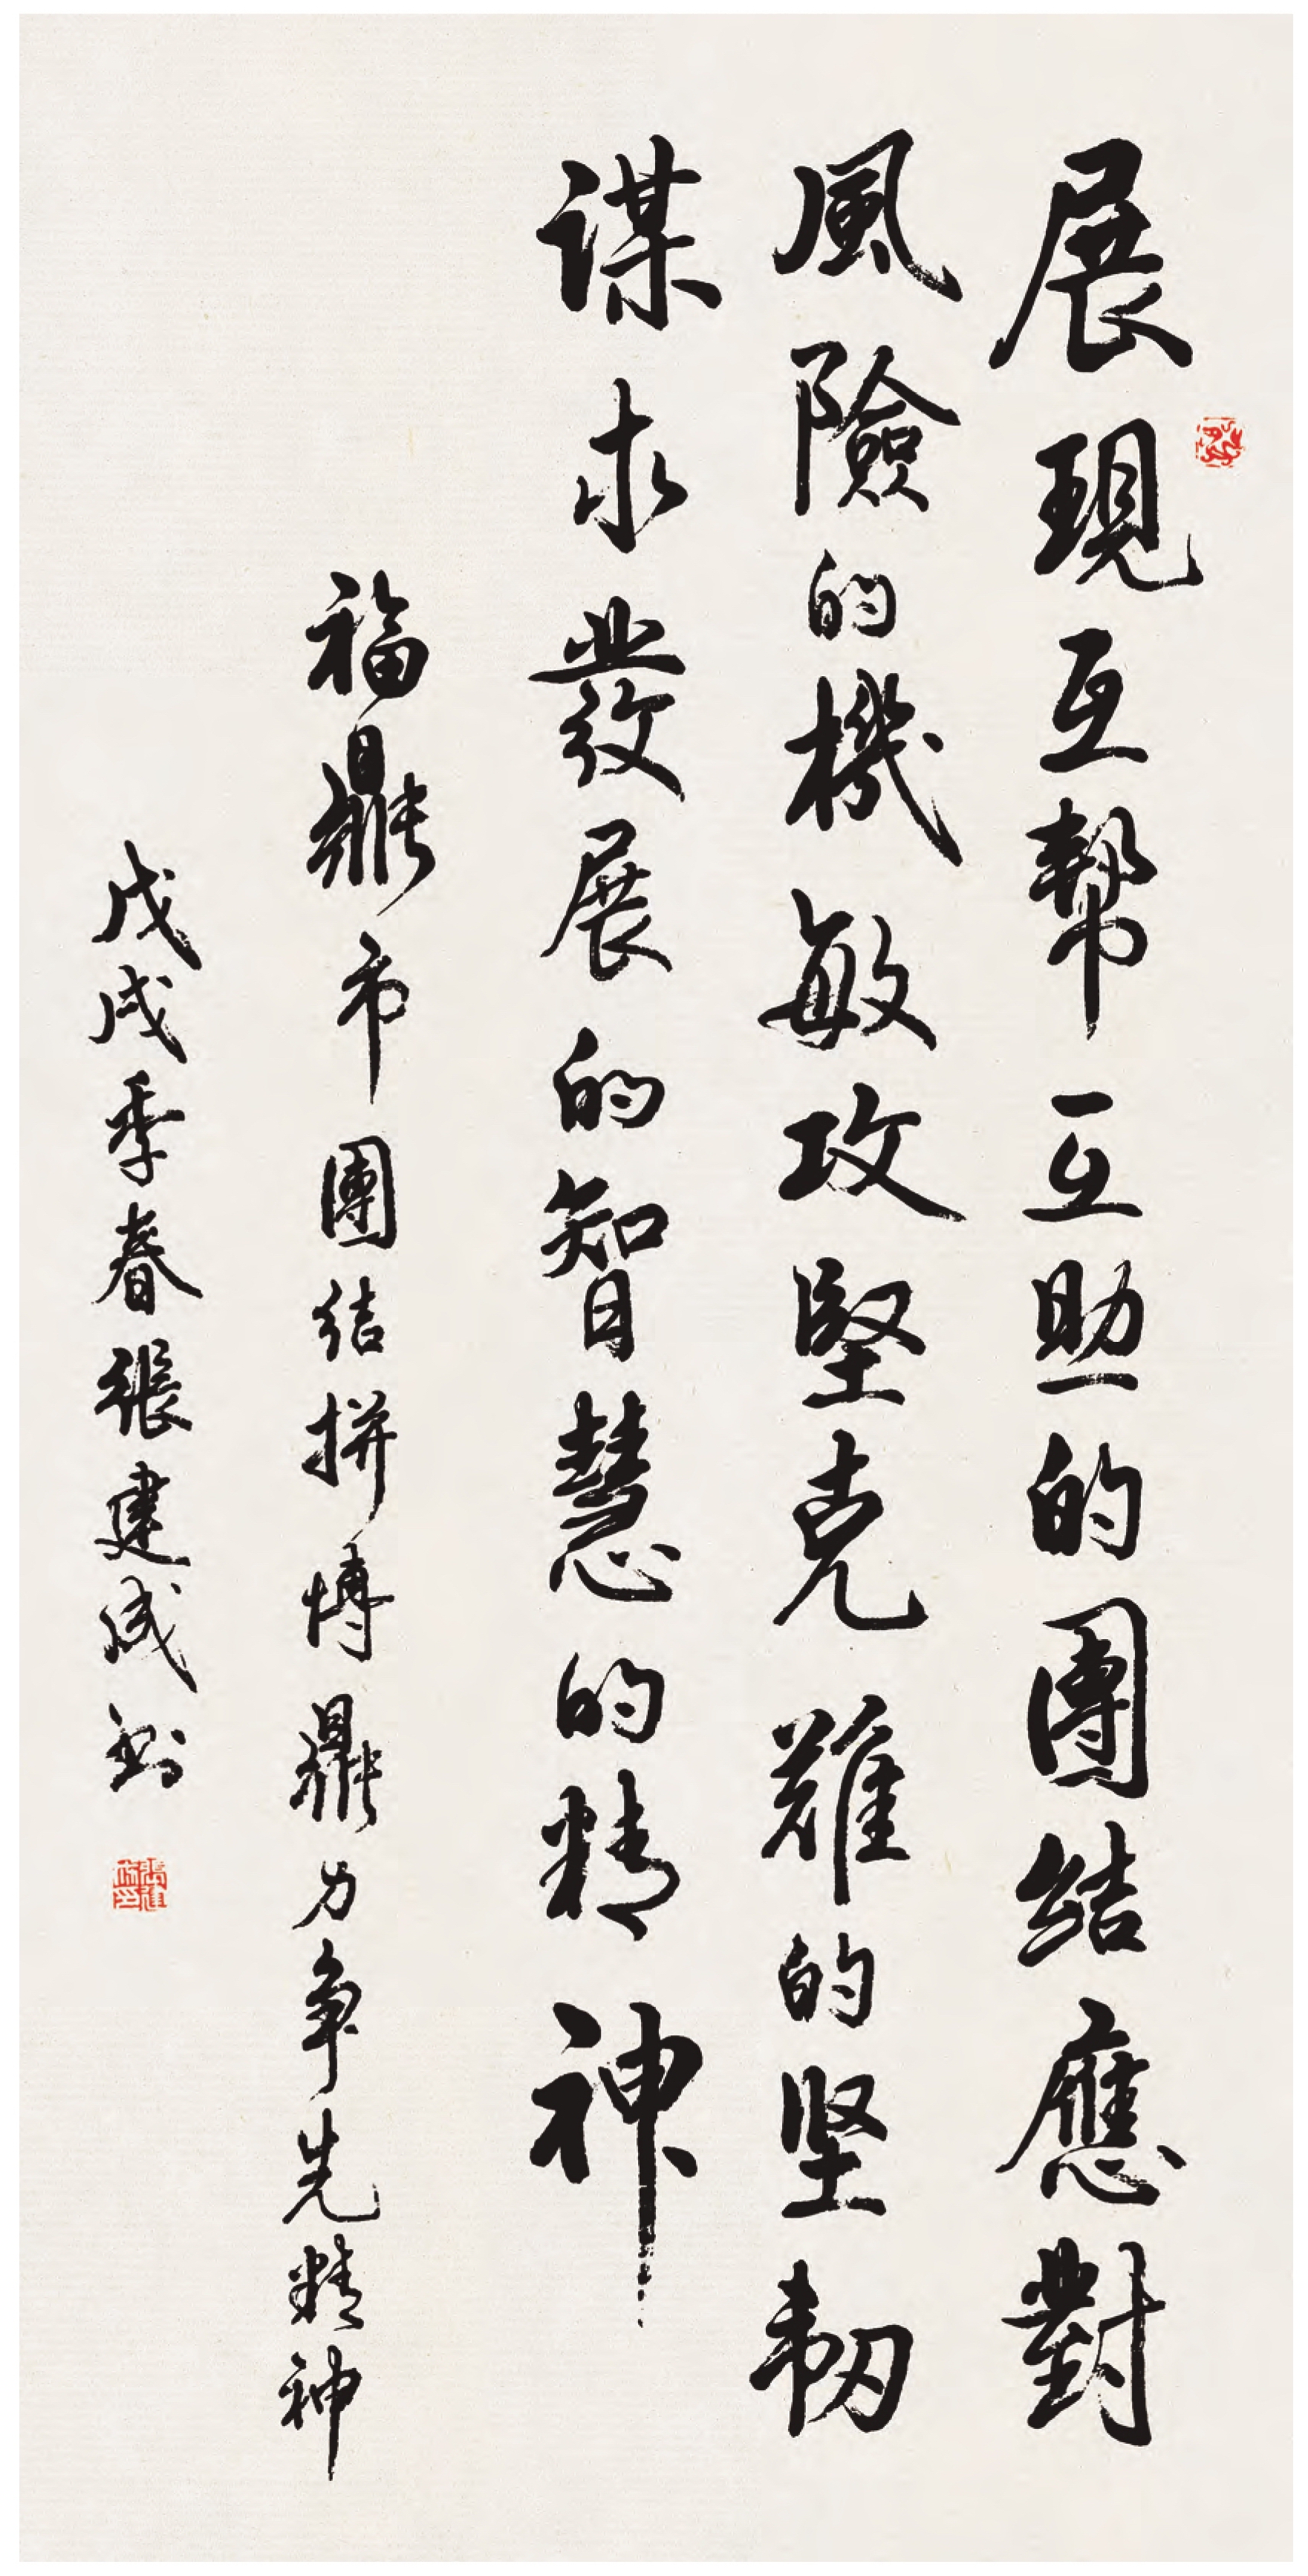 展現互幫互助的團結應對
風險的機敏攻堅克難的坚韧
谋求發展的智慧的精神
福鼎市團結拼搏鼎力争先精神
戊戌季春張建成書